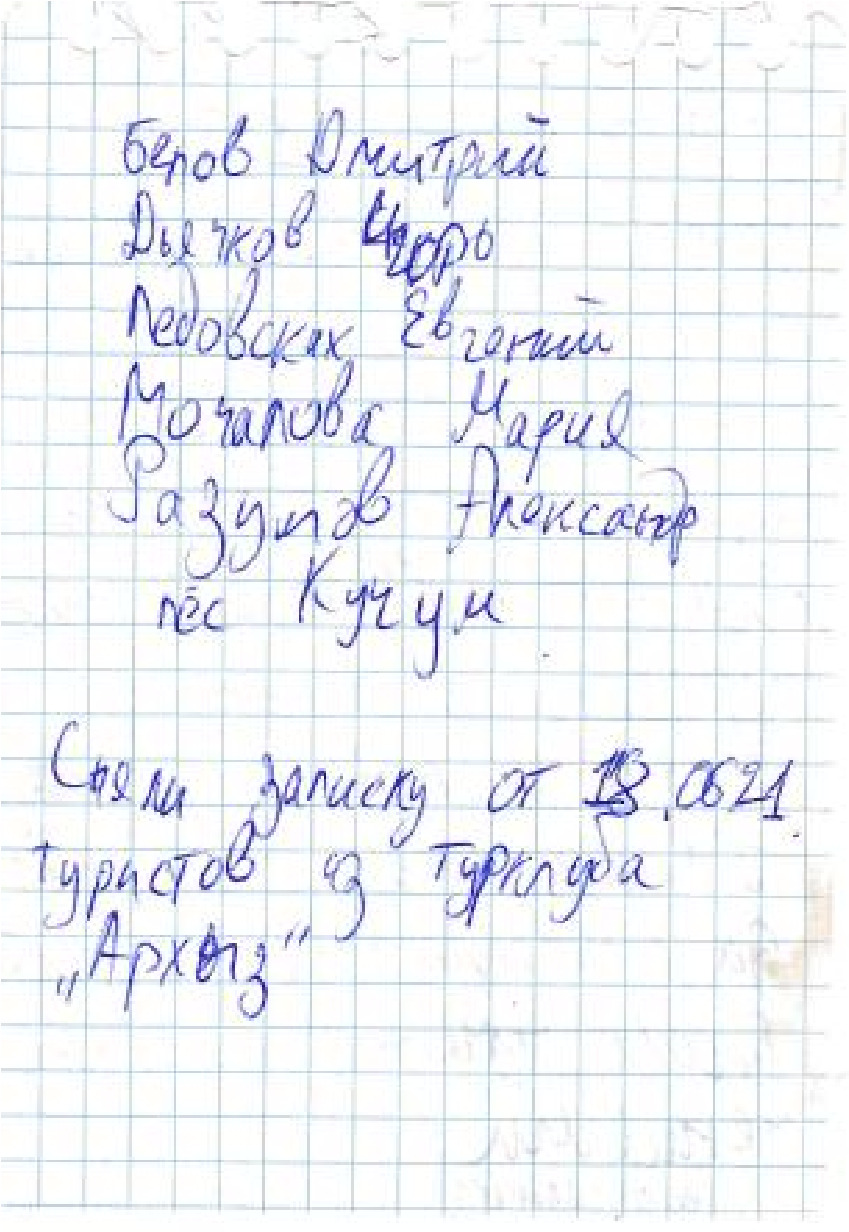 Белов Дмитрий
Дьячков Игорь
Ледовских Евгений
Мочалова Мария
Разумов Александр
пёс Кучум
Сняли записку от 18.0621
туристов из турклуба
„Архыз"